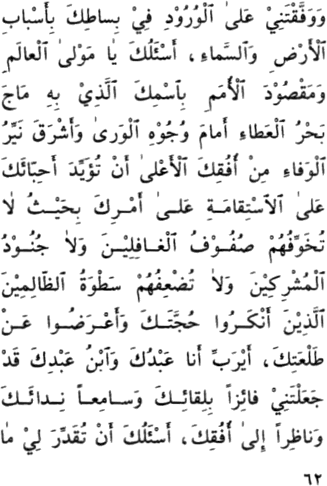 وَوَفَّقْتَنِيْ عَلىٰ ٱلْوُرُوْدِ فِيْ بِساطِكَ بِأَسْبابِ
ٱلْأَرْضِ وَٱلسَّماءِ، أَسْئَلُكَ يٰا مَوْلىٰ ٱلْعالَمِ
وَمَقْصُوْدَ ٱلْأُمَمِ بِٱسْمِكَ ٱلَّذِيْ بِهِ مٰاجَ
بَحْرُ ٱلْعَطاءِ أَمامَ وُجُوْهِ ٱلْوَرىٰ وَأَشْرَقَ نَيِّرُ
ٱلْوَفاءِ مِنْ أُفُقِكَ ٱلْأَعْلىٰ أَنْ تُؤَيِّدَ أَحِبّائَكَ
عَلىٰ ٱلْاسْتِقامَةِ عَلىٰ أَمْرِكَ بِحَيْثُ لٰا
تُخَوِّفُهُمْ صُفُوْفُ ٱلْغافِلِيْنَ وَلٰا جُنُوْدُ
ٱلْمُشْرِكِيْنَ وَلٰا تُضْعِفُهُمْ سَطْوَةُ ٱلظّالِمِيْنَ
ٱلَّذِيْنَ أَنْكَرُوا حُجَّتَكَ وَأَعْرَضُوا عَنْ
طَلْعَتِكَ، أَيْرَبِّ أَنا عَبْدُكَ وَٱبْنُ عَبْدِكَ قَدْ
جَعَلْتَنِيْ فائِزاً بِلِقائِكَ وَسامِعاً نِدائَكَ
وَناظِراً إِلىٰ أُفُقِكَ، أَسْئَلُكَ أَنْ تُقَدِّرَ لِيْ مٰا
٦٢